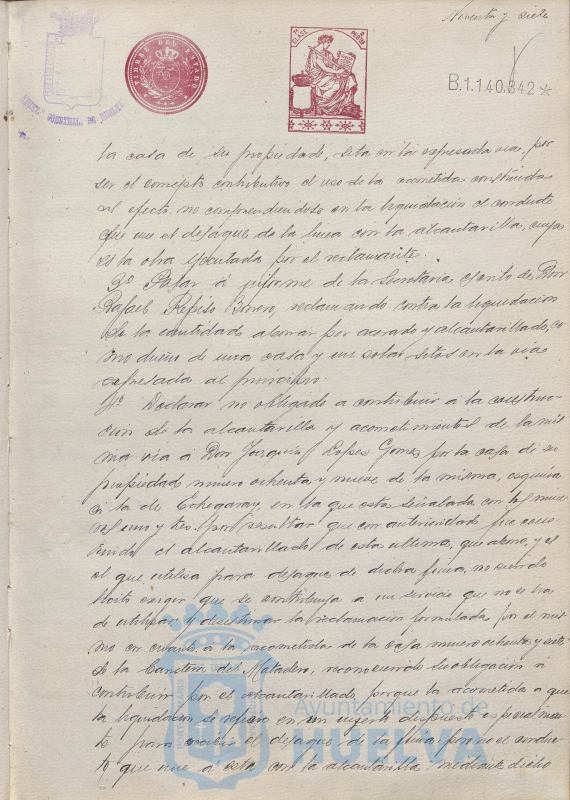 Noventa y siete
TIMBRE DEL ESTADO
CLASE
B.1.140.842 *
la casa de su propiedad, sita en la expresada vía, por
ser el concepto contributivo el uso de la acometida construida
al efecto no comprendiendose en la liquidación el conducto
que une el desague de la finca con la alcantarilla, cuya
es la obra ejecutada por el reclamante.
3º Pasar á informe de la Secretaria escrito de Don
Rafael Repiso Borrero, reclamando contra la liquidación
de la cantidad a abonar por acerado y alcantarillado, co
mo dueño de una casa y un solar sitos en la vía
expresada al principio.
4º Declarar no obligado a contribuir á la construc
cion de la alcantarilla y acometimientos de la mis
ma vía á Don Joaquin Lopez Gomez por la casa de su
propiedad número ochenta y nueve de la misma, esquina
á la de Echegaray, en la que está señalada con los núme
ros uno y tres, por resultar que con anterioridad fue cons
truido el alcantarillado de esta ultima, que abonó, y es
el que utiliza para desague de dicha finca, no siendo
licito exigir que se contribuya á un servicio que no se ha
de utilizar; y desestimar la reclamación formulada por el mis
mo en cuanto á la acometida de la casa número ochenta y siete
de la Carretera del Matadero, reconociendo su obligación á
contribuir por el alcantarillado, porque la acometida a que
la liquidación se refiere en un injerto dispuesto especialmen
te para recibir el desague de la finca, pero no el conduc
to que une á esta con la alcantarilla, mediante dicho
Ayuntamiento de
HUELVA